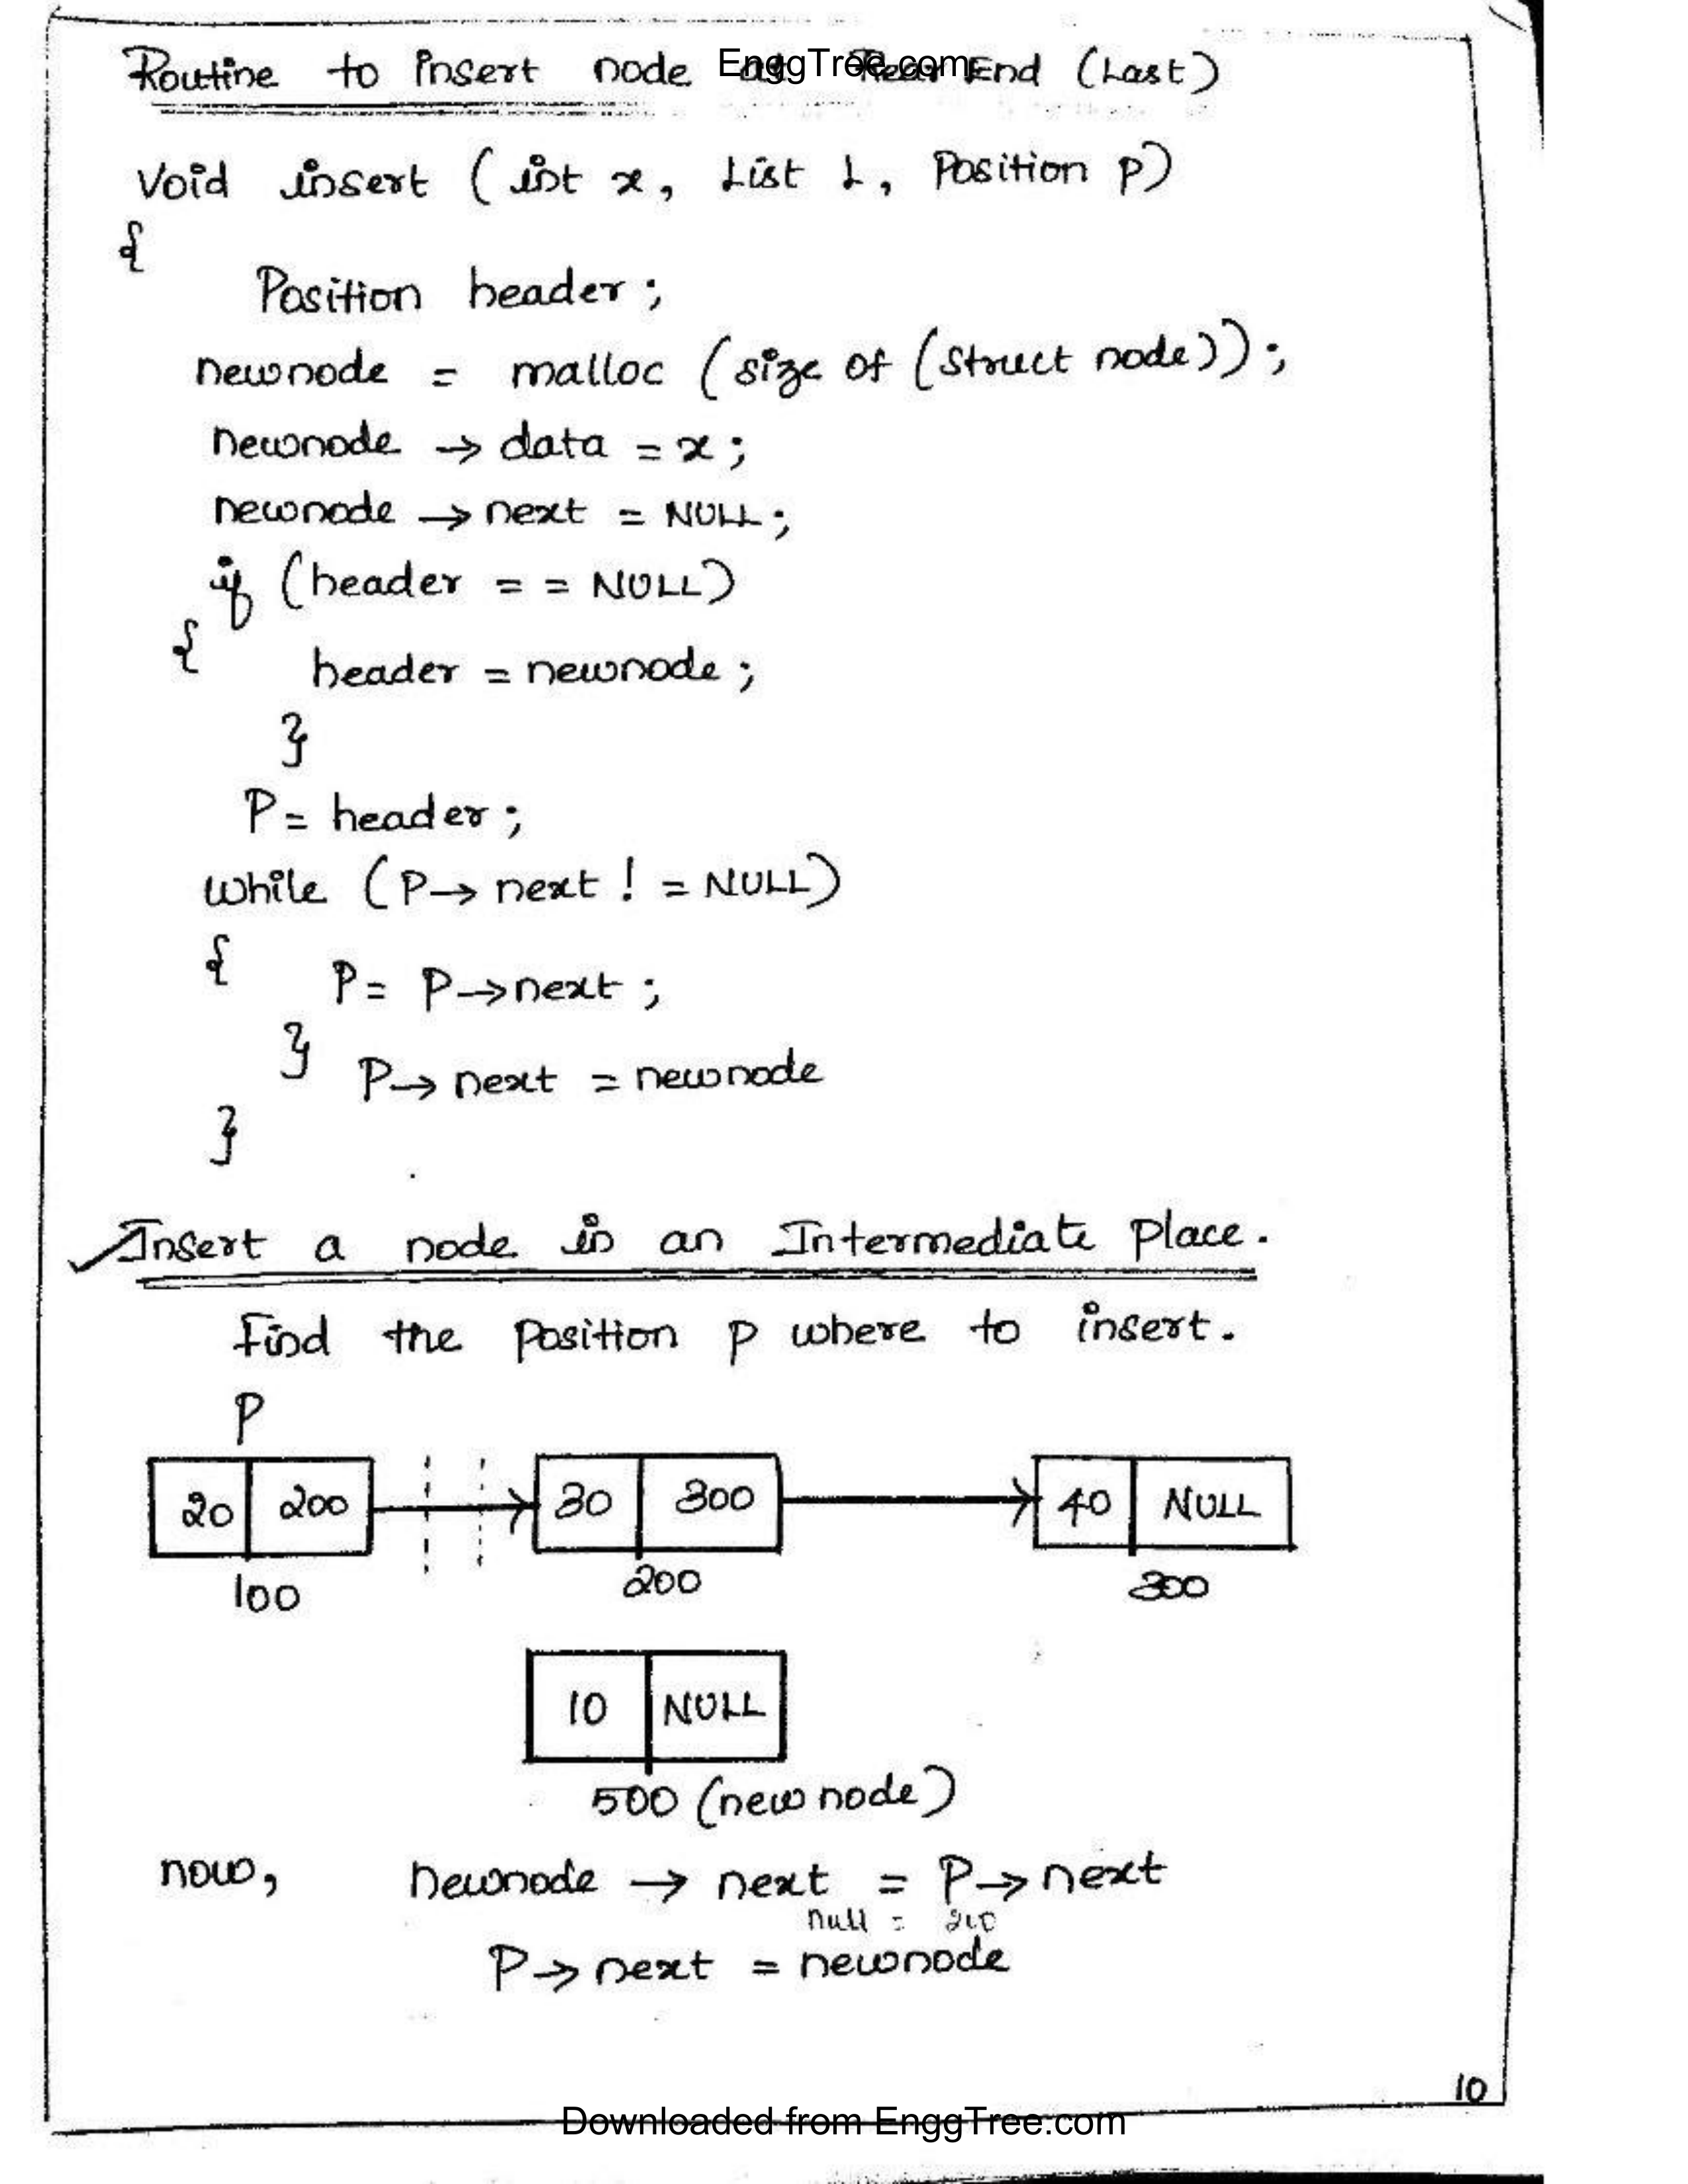 EnggTree.com
Routine to insert node at Rear End (Last)
Void insert (int x, List L, Position P)
{
Position header;
newnode = malloc (size of (struct node));
newnode → data = x;
newnode → next = NULL;
if (header = = NULL)
{ header = newnode;
}
P = header;
while (P→ next ! = NULL)
{ P = P→next;
} P→ next = newnode
}
Insert a node in an Intermediate place.
Find the position P where to insert.
P
20 200 30 300 40 NULL
100 200 300
10 NULL
500 (new node)
now, newnode → next = P→ next
null = 200
P→ next = newnode
10
Downloaded from EnggTree.com